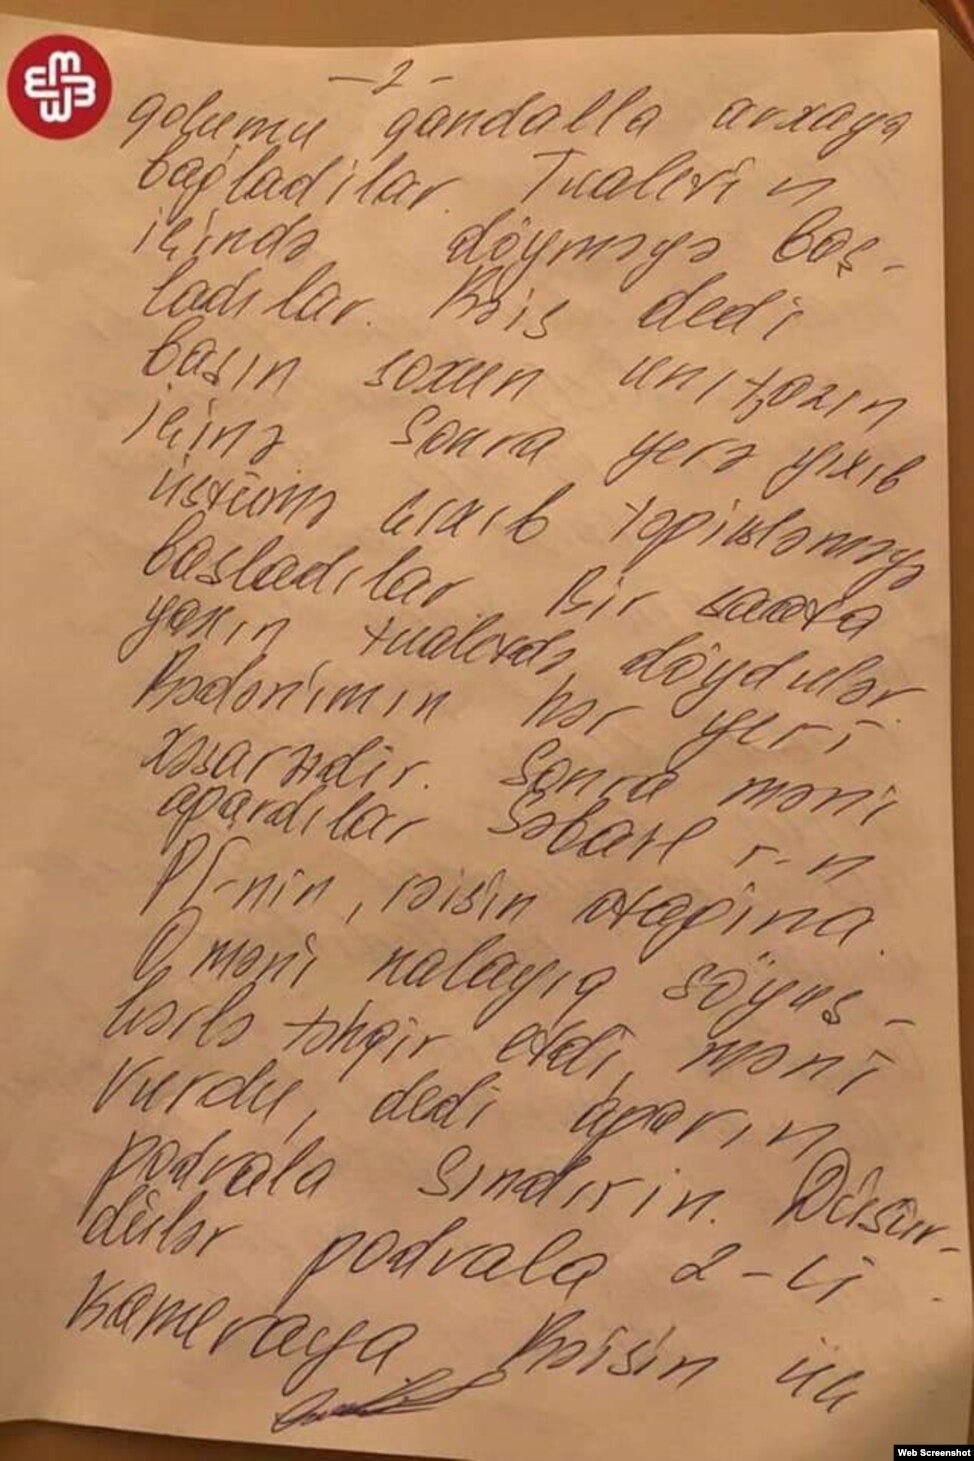 -2-
qolumu qandalla arxaya
bağladılar. Tualetin
içində döyməyə baş-
ladılar. Rəis dedi
başın soxun unitazın
içinə sonra yerə yıxıb
üstümə çıxıb təpikləməyə
başladılar Bir saata
yaxın tualetdə döydülər
Bədənimin hər yeri
xəsarətdir. Sonra məni
apardılar Səbail r-n
Pİ-nin, rəisin otağına.
O məni nalayiq söyüş-
lərlə təhqir etdi, məni
vurdu, dedi aparın
podvala sındırın. Düşür-
dülər podvala 2-ci
kameraya Rəisin üç
MEYDAN TV
Web Screenshot